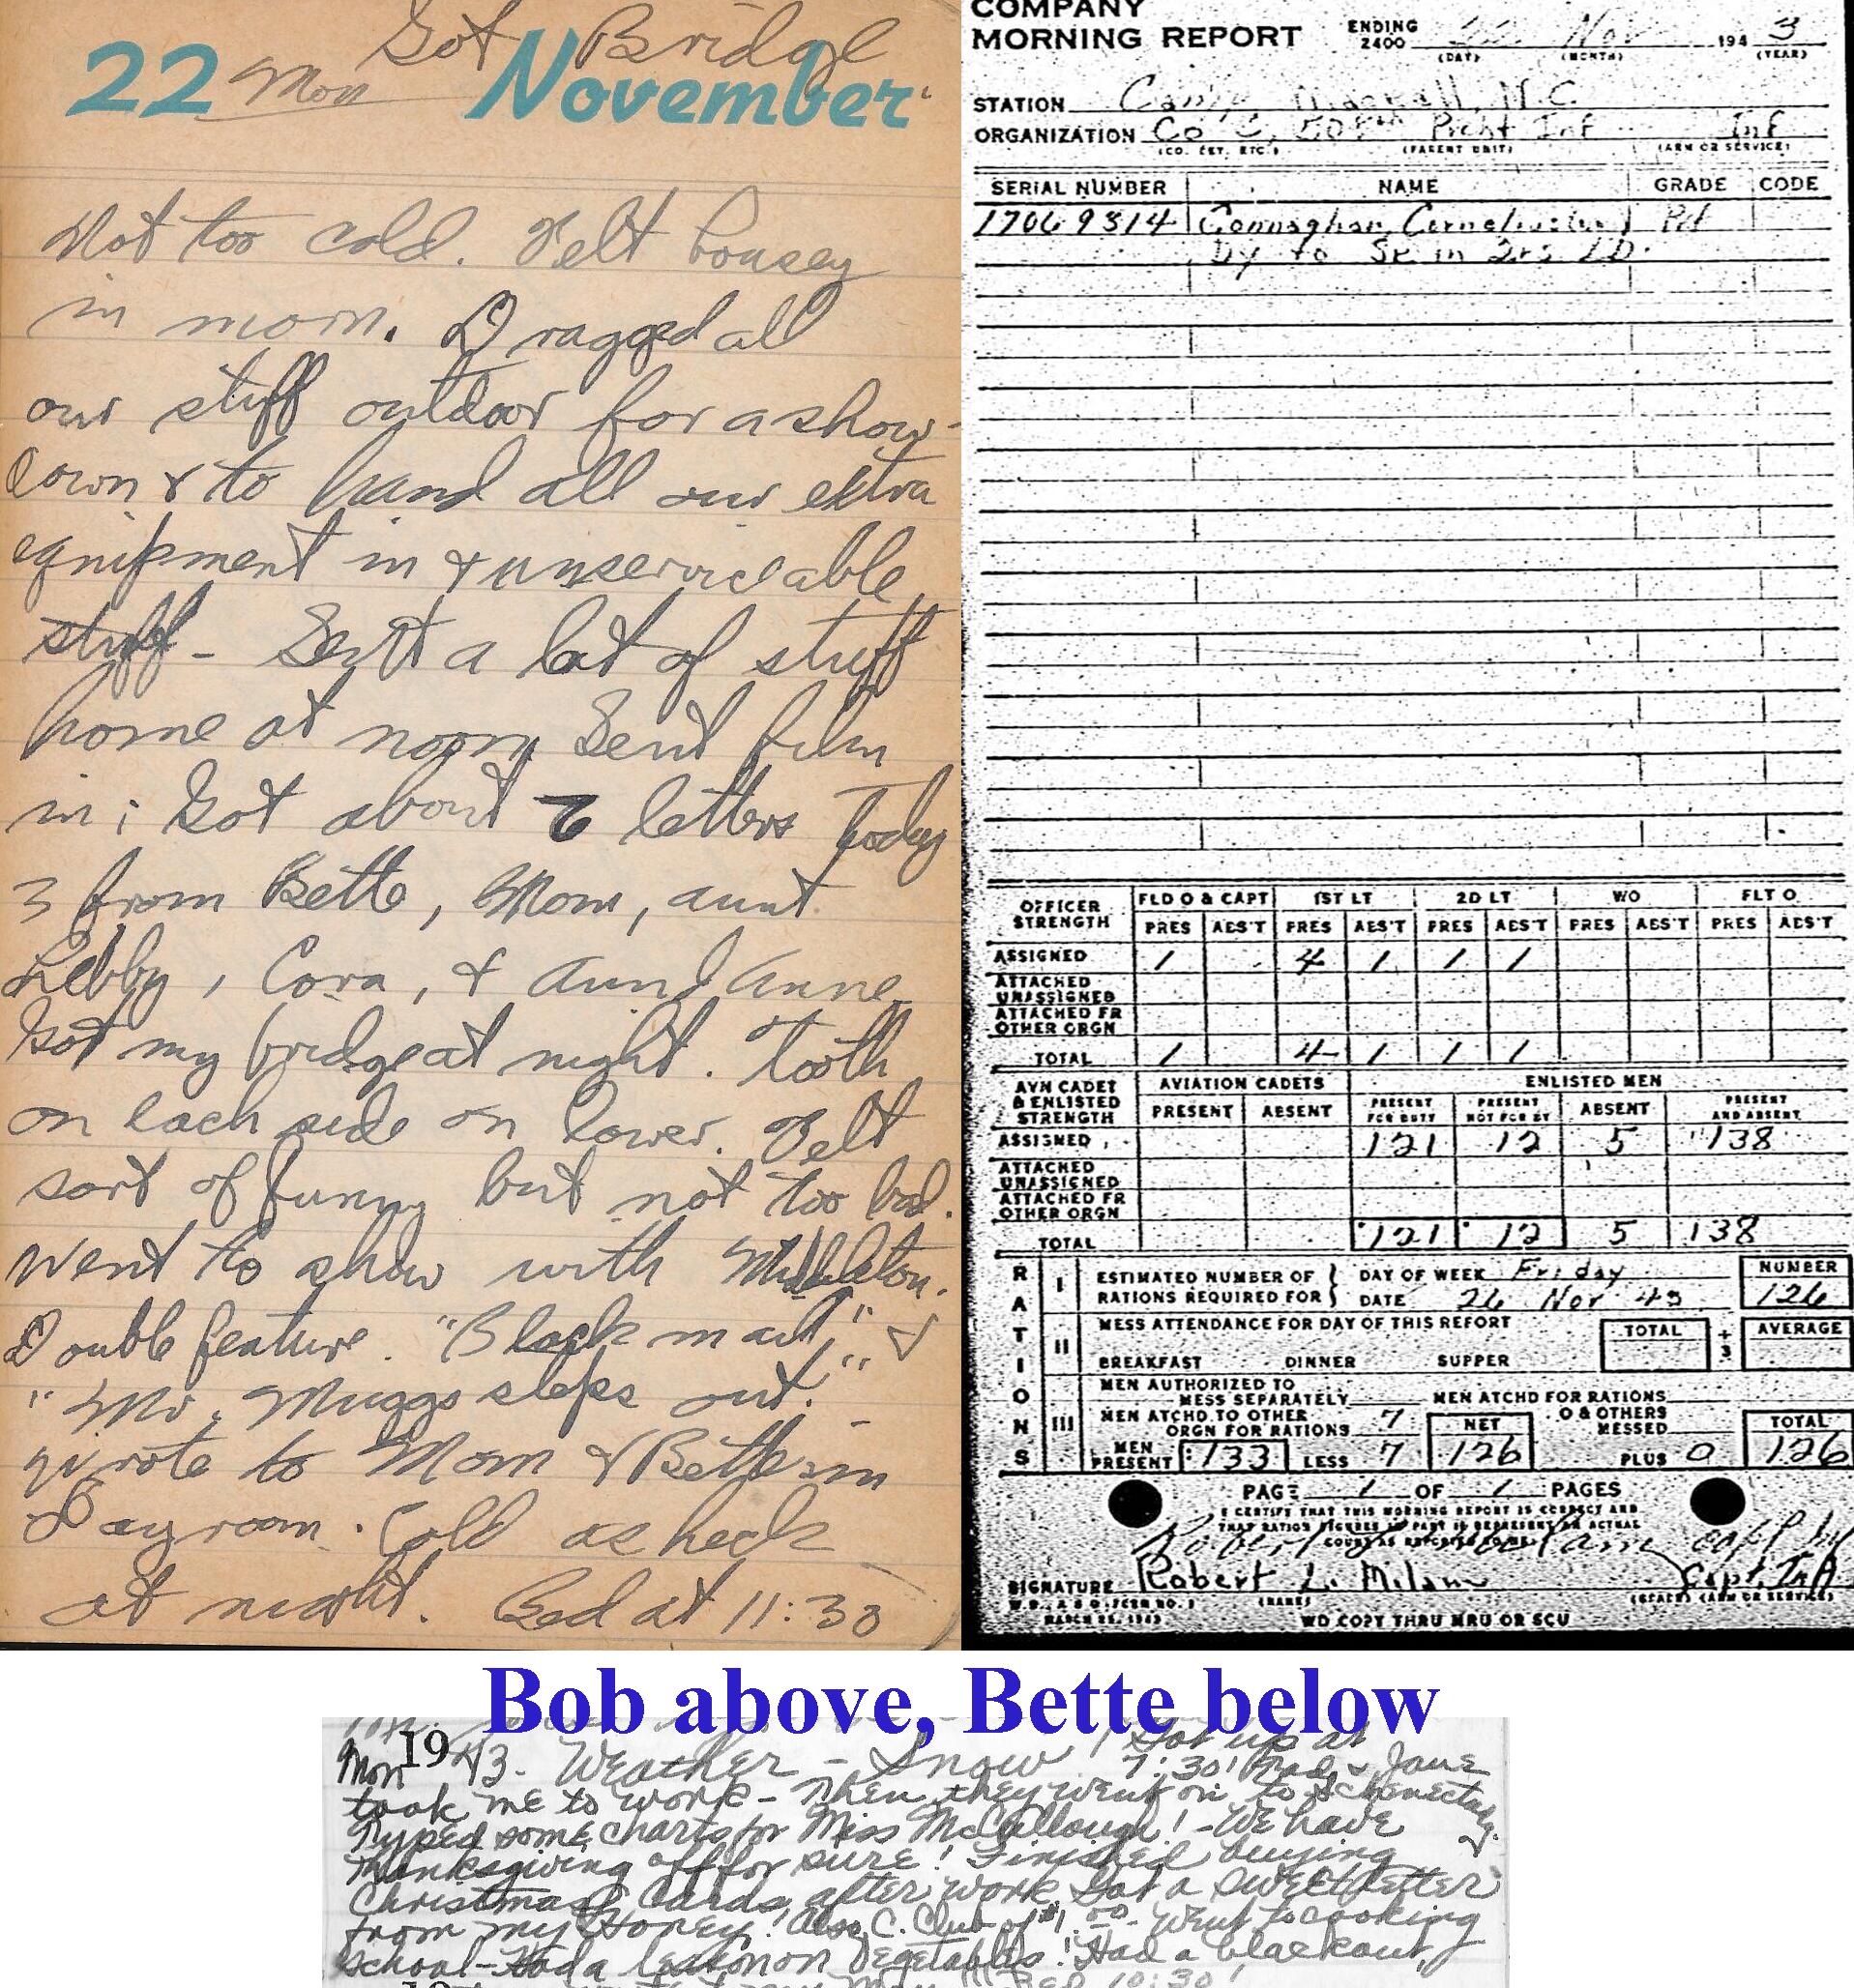 Got Bridge
22 Mon November
Not too cold. Felt lousey
in morn. Dragged all
our stuff outdoor for a show-
down & to hand all our extra
equipment in & unserviceable
stuff - Sent a lot of stuff
home at noon Sent film
in; Got about 7 letters Today
3 from Bette, Mom, aunt
Libby, Cora, & Aunt Anne
Got my bridge at night. Tooth
on each side on lower. Felt
sort of funny but not too bad.
Went to show with Middleton.
Double feature. "Black mail" &
"Mr. Muggs steps out."
Wrote to Mom & Bette in
Dayroom. Cold as heck
at night. Bed at 11:30
COMPANY
MORNING REPORT ENDING 2400 22 Nov 1943
(DAY) (MONTH) (YEAR)
STATION Camp Mackall, N.C.
ORGANIZATION Co C, 508th Prcht Inf Inf
(CO. DET. ETC.) (PARENT UNIT) (ARM OR SERVICE)
SERIAL NUMBER NAME GRADE CODE
17069314 Connaghan, Cornelius Pvt
Dy to Sk in Qrs LD.
OFFICER STRENGTH FLD O & CAPT 1ST LT 2D LT WO FLT O
PRES ABS'T PRES ABS'T PRES ABS'T PRES ABS'T PRES ABS'T
ASSIGNED 1 4 1 1 1
ATTACHED UNASSIGNED
ATTACHED FR OTHER ORGN
TOTAL 1 4 1 1 1
AVN CADET & ENLISTED STRENGTH AVIATION CADETS ENLISTED MEN
PRESENT ABSENT PRESENT FOR DUTY PRESENT NOT FOR DY ABSENT PRESENT AND ABSENT
ASSIGNED 121 12 5 138
ATTACHED UNASSIGNED
ATTACHED FR OTHER ORGN
TOTAL 121 12 5 138
RATIONS
I ESTIMATED NUMBER OF RATIONS REQUIRED FOR DAY OF WEEK Friday NUMBER
DATE 26 Nov 43 126
II MESS ATTENDANCE FOR DAY OF THIS REPORT TOTAL ÷ 3 AVERAGE
BREAKFAST DINNER SUPPER
III MEN AUTHORIZED TO MESS SEPARATELY MEN ATCHD FOR RATIONS
MEN ATCHD TO OTHER ORGN FOR RATIONS 7 NET O & OTHERS MESSED TOTAL
MEN PRESENT 133 LESS 7 126 PLUS 0 126
PAGE 1 OF 1 PAGES
I CERTIFY THAT THIS MORNING REPORT IS CORRECT AND
THAT RATION FIGURES IN PART III REPRESENT AN ACTUAL
COUNT AS REPORTED TO ME
SIGNATURE Robert L. Milam Capt. Inf
W.D., A.G.O. FORM NO. 1 (NAME) (GRADE) (ARM OR SERVICE)
MARCH 1943 WD COPY THRU MRU OR SCU
Bob above, Bette below
Mon 1943. Weather - Snow! Got up at
7:30! Fred & Jane
took me to work - Then they went on to Schenectady.
Typed some charts for Miss McCullough! - We have
Thanksgiving off for sure! Finished buying
Christmas Cards after work. Got a sweet letter
from my Honey! Also C. Club of $1.00. Went to cooking
School - Had a lesson on Vegetables! Had a blackout,
10:30!